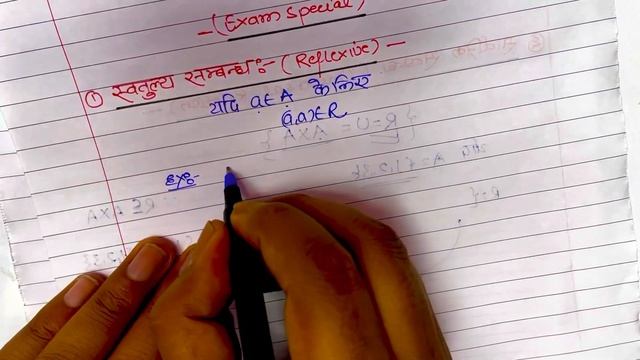 -(Exam special)
① स्वतुल्य सम्बन्ध:- (Reflexive) -
यदि a∈A के लिए
(a,a)∈R
Ex:-